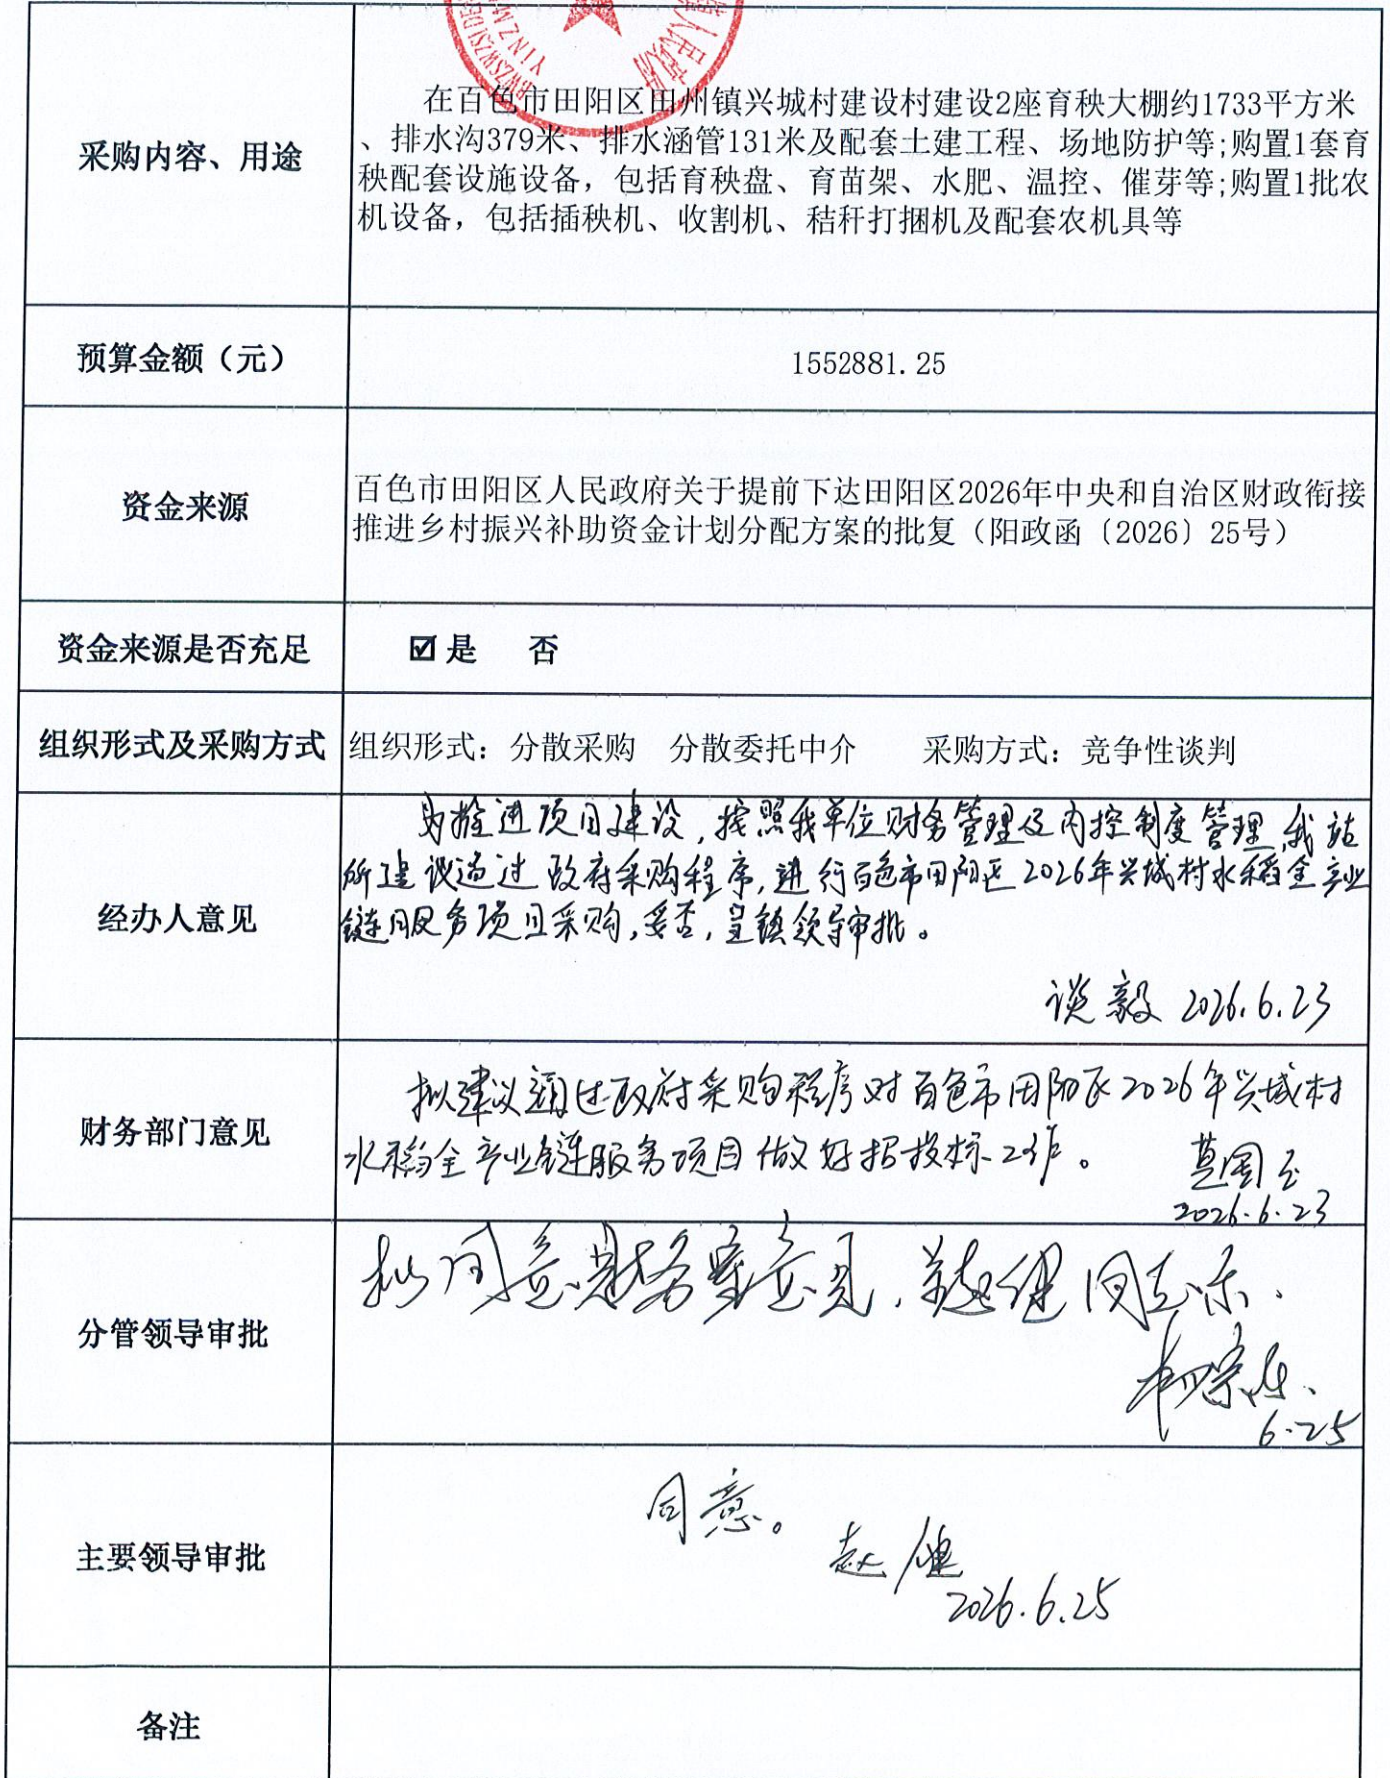 人民政府
YINZM
采购内容、用途
在百色市田阳区田州镇兴城村建设村建设2座育秧大棚约1733平方米
、排水沟379米、排水涵管131米及配套土建工程、场地防护等;购置1套育
秧配套设施设备，包括育秧盘、育苗架、水肥、温控、催芽等;购置1批农
机设备，包括插秧机、收割机、秸秆打捆机及配套农机具等
预算金额（元）
1552881.25
资金来源
百色市田阳区人民政府关于提前下达田阳区2026年中央和自治区财政衔接
推进乡村振兴补助资金计划分配方案的批复（阳政函〔2026〕25号）
资金来源是否充足
☑是 否
组织形式及采购方式
组织形式：分散采购 分散委托中介 采购方式：竞争性谈判
经办人意见
为推进项目建设,按照我单位财务管理及内控制度管理,我站
所建议通过政府采购程序,进行百色市田阳区2026年兴城村水稻全产业
链服务项目采购,妥否,呈镇领导审批。
谈毅 2026.6.23
财务部门意见
拟建议通过政府采购程序对百色市田阳区2026年兴城村
水稻全产业链服务项目做好招投标工作。
2026.6.23
分管领导审批
拟同意财务室意见,
6.25
主要领导审批
同意。
赵健
2026.6.25
备注